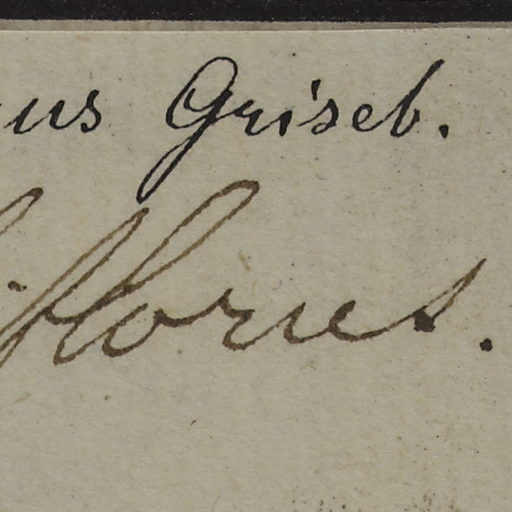 us Griseb.
iflorus.